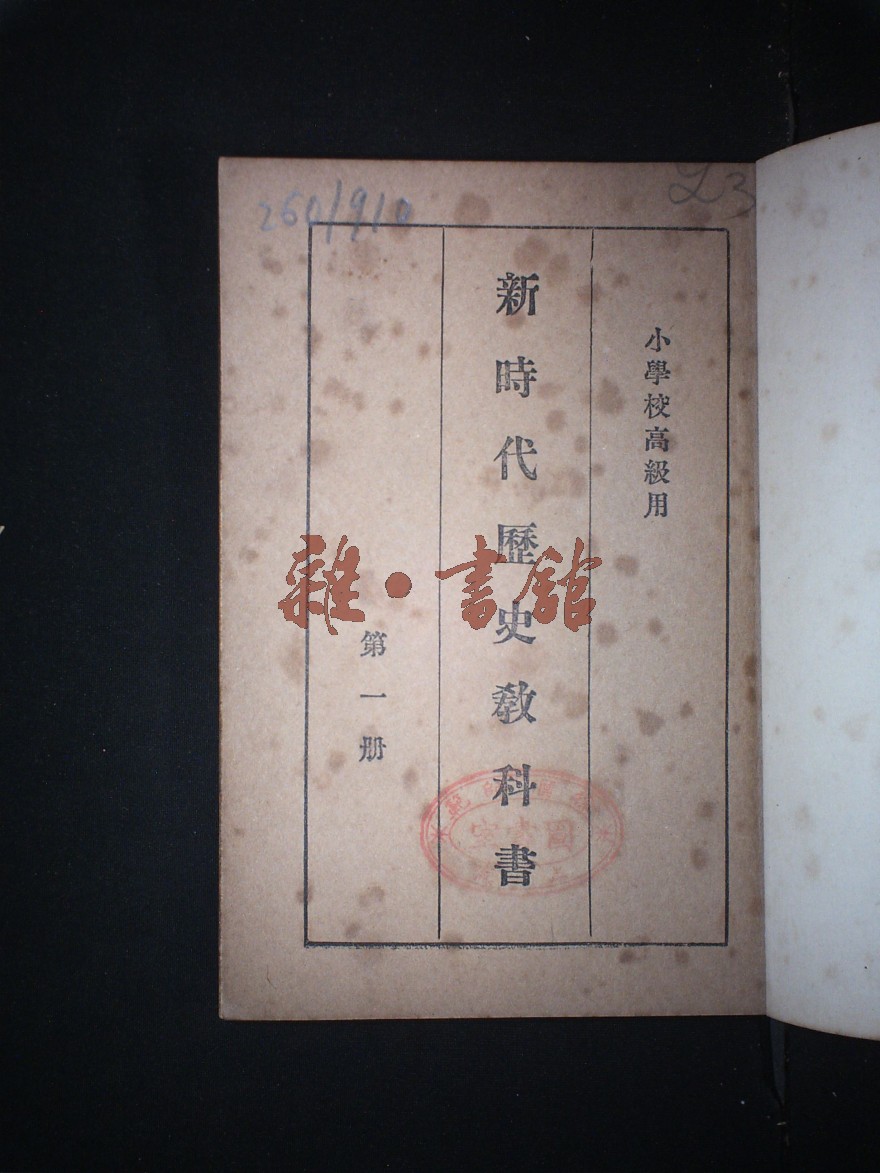 260/910
L3
小學校高級用
新時代歷史教科書
第一册
雜·書館
圖書室